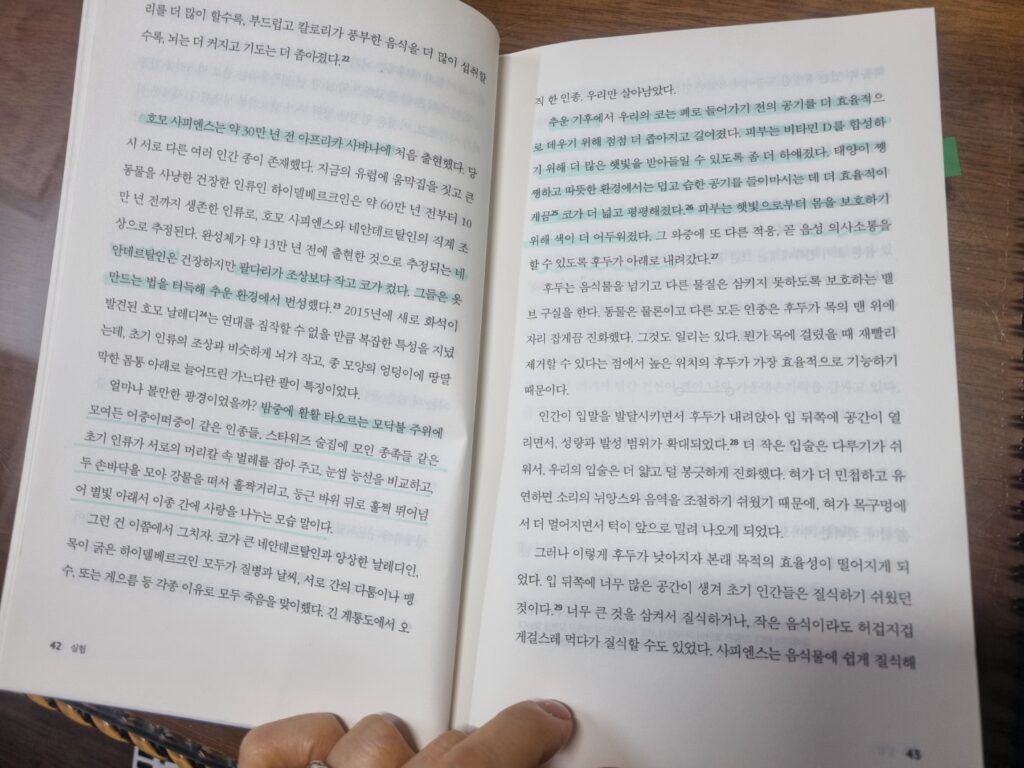 리를 더 많이 할수록, 부드럽고 칼로리가 풍부한 음식을 더 많이 섭취할
수록, 뇌는 더 커지고 기도는 더 좁아졌다.22
호모 사피엔스는 약 30만 년 전 아프리카 사바나에 처음 출현했다. 당
시 서로 다른 여러 인간 종이 존재했다. 지금의 유럽에 움막집을 짓고 큰
동물을 사냥한 건장한 인류인 하이델베르크인은 약 60만 년 전부터 10
만 년 전까지 생존한 인류로, 호모 사피엔스와 네안데르탈인의 직계 조
상으로 추정된다. 완성체가 약 13만 년 전에 출현한 것으로 추정되는 네
안데르탈인은 건장하지만 팔다리가 조상보다 작고 코가 컸다. 그들은 옷
만드는 법을 터득해 추운 환경에서 번성했다.23 2015년에 새로 화석이
발견된 호모 날레디24는 연대를 짐작할 수 없을 만큼 복잡한 특성을 지녔
는데, 초기 인류의 조상과 비슷하게 뇌가 작고, 종 모양의 엉덩이에 땅딸
막한 몸통 아래로 늘어뜨린 가느다란 팔이 특징이었다.
얼마나 볼만한 광경이었을까? 밤중에 활활 타오르는 모닥불 주위에
모여든 어중이떠중이 같은 인종들, 스타워즈 술집에 모인 종족들 같은
초기 인류가 서로의 머리칼 속 벌레를 잡아 주고, 눈썹 능선을 비교하고,
두 손바닥을 모아 강물을 떠서 훌쩍거리고, 둥근 바위 뒤로 훌쩍 뛰어넘
어 별빛 아래서 이종 간에 사랑을 나누는 모습 말이다.
그런 건 이쯤에서 그치자. 코가 큰 네안데르탈인과 앙상한 날레디인,
목이 굵은 하이델베르크인 모두가 질병과 날씨, 서로 간의 다툼이나 맹
수, 또는 게으름 등 각종 이유로 모두 죽음을 맞이했다. 긴 계통도에서 오
42 실험
직 한 인종, 우리만 살아남았다.
추운 기후에서 우리의 코는 폐로 들어가기 전의 공기를 더 효율적으
로 데우기 위해 점점 더 좁아지고 길어졌다. 피부는 비타민 D를 합성하
기 위해 더 많은 햇빛을 받아들일 수 있도록 좀 더 하얘졌다. 태양이 쨍
쨍하고 따뜻한 환경에서는 덥고 습한 공기를 들이마시는 데 더 효율적이
게끔25 코가 더 넓고 평평해졌다.26 피부는 햇빛으로부터 몸을 보호하기
위해 색이 더 어두워졌다. 그 와중에 또 다른 적응, 곧 음성 의사소통을
할 수 있도록 후두가 아래로 내려갔다.27
후두는 음식물을 넘기고 다른 물질은 삼키지 못하도록 보호하는 밸
브 구실을 한다. 동물은 물론이고 다른 모든 인종은 후두가 목의 맨 위에
자리 잡게끔 진화했다. 그것도 일리는 있다. 뭔가 목에 걸렸을 때 재빨리
제거할 수 있다는 점에서 높은 위치의 후두가 가장 효율적으로 기능하기
때문이다.
인간이 입말을 발달시키면서 후두가 내려앉아 입 뒤쪽에 공간이 열
리면서, 성량과 발성 범위가 확대되었다.28 더 작은 입술은 다루기가 쉬
워서, 우리의 입술은 더 얇고 덜 봉긋하게 진화했다. 혀가 더 민첩하고 유
연하면 소리의 뉘앙스와 음역을 조절하기 쉬웠기 때문에, 혀가 목구멍에
서 더 멀어지면서 턱이 앞으로 밀려 나오게 되었다.
그러나 이렇게 후두가 낮아지자 본래 목적의 효율성이 떨어지게 되
었다. 입 뒤쪽에 너무 많은 공간이 생겨 초기 인간들은 질식하기 쉬웠던
것이다.29 너무 큰 것을 삼켜서 질식하거나, 작은 음식이라도 허겁지겁
게걸스레 먹다가 질식할 수도 있었다. 사피엔스는 음식물에 쉽게 질식해
43